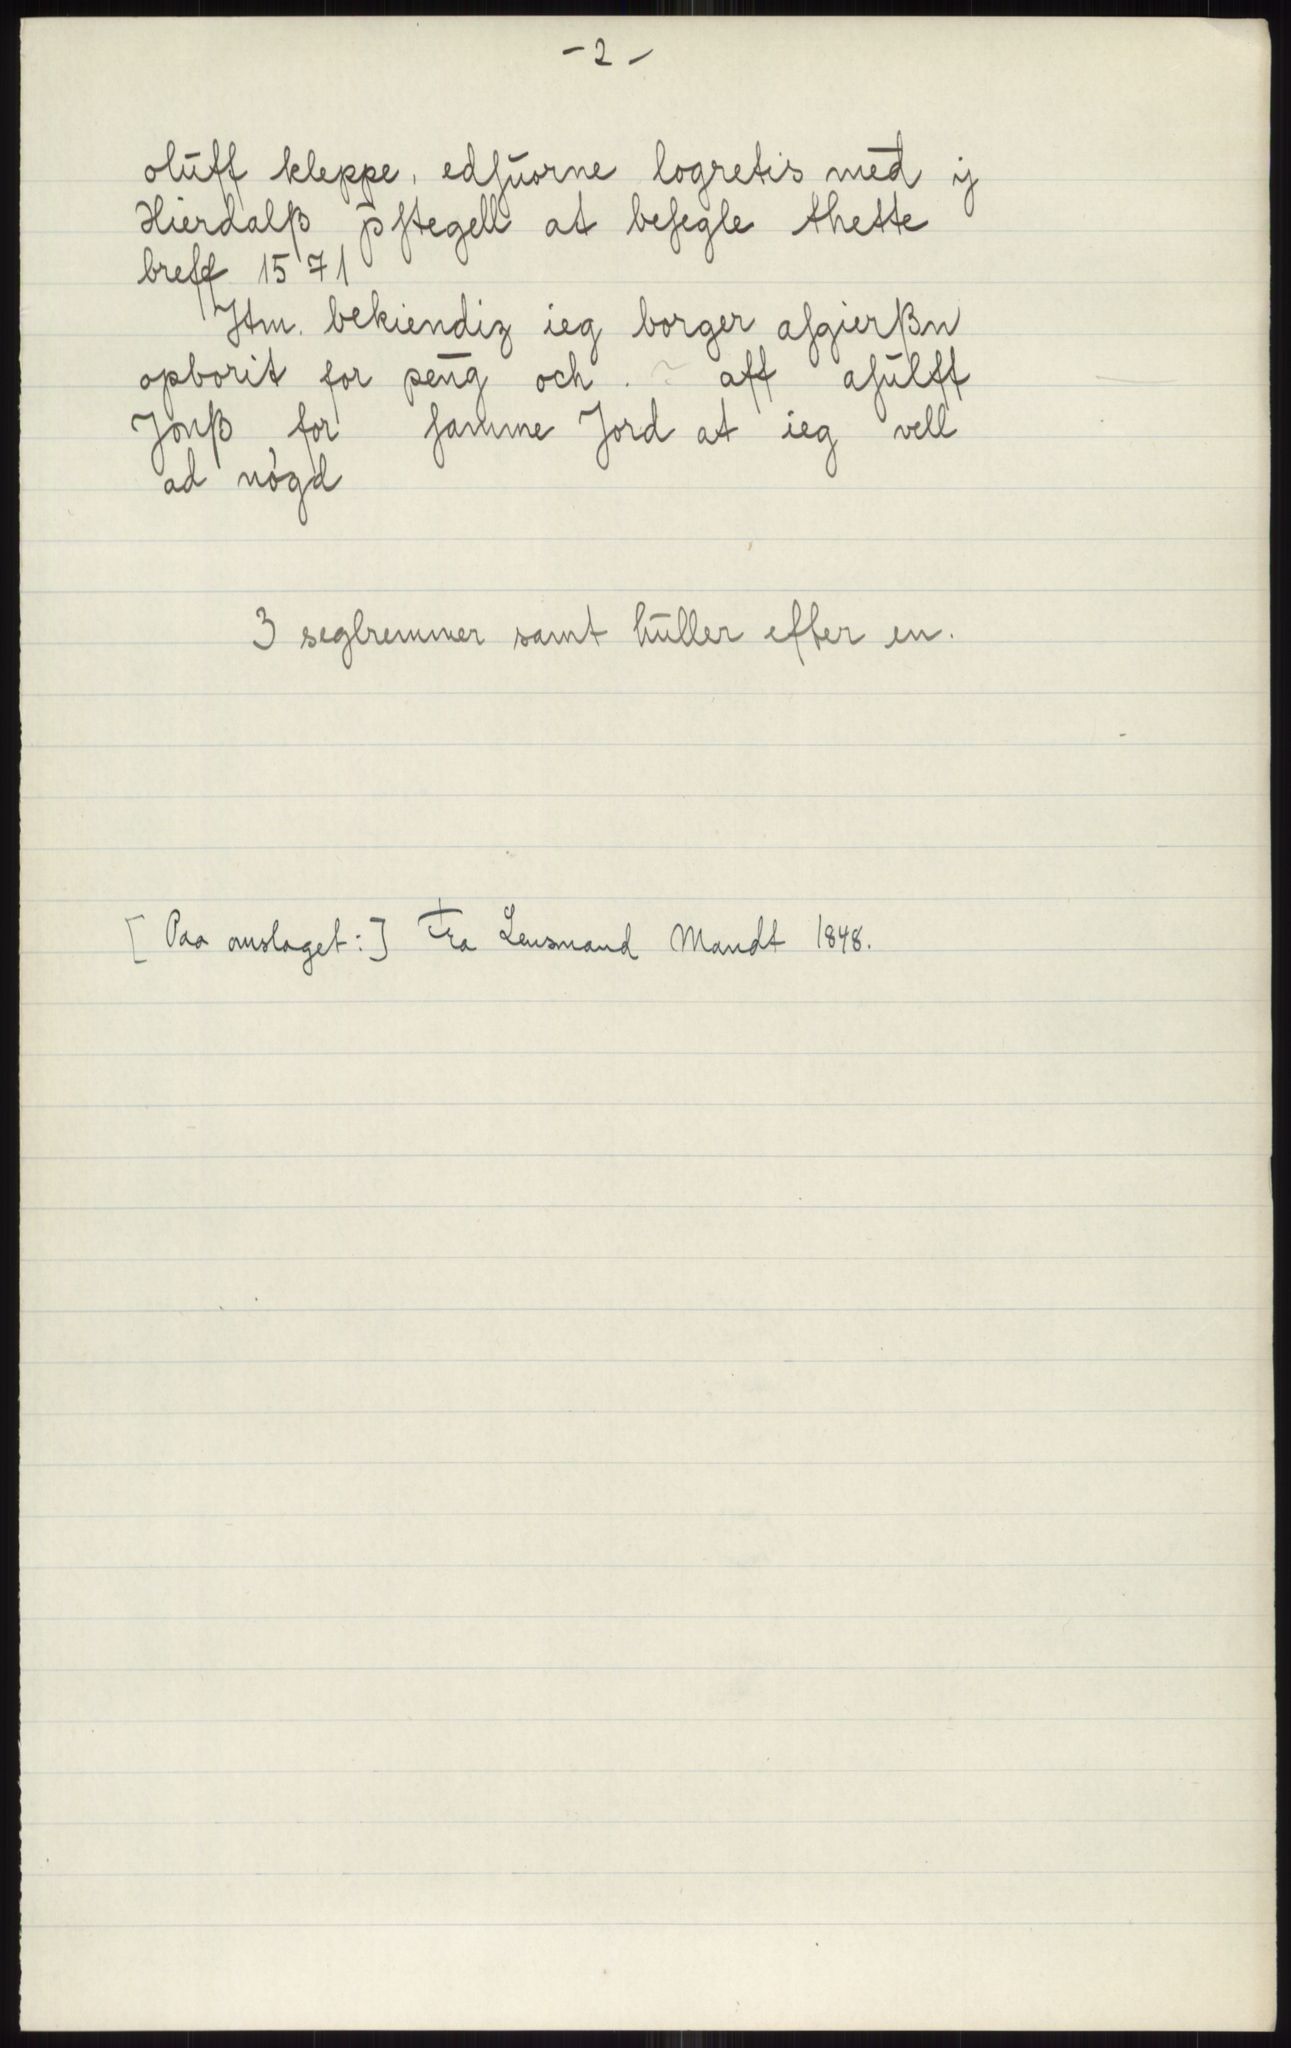 - 2 -
olūff kleppe, edſūorne logretis med̄ ij
Hierdalß p̄ſtegell at beſegle thette
breff 1571
Jtm. bekiendiz ieg borger aſgierßn
opborit for pēng och . ~ aff aſūlff
Jonß for ſamme Jord at ieg vell
ad nògd
3 seglremmer samt hūller efter en.
[Paa omslaget:] Fra Lensmand Mandt 1848.